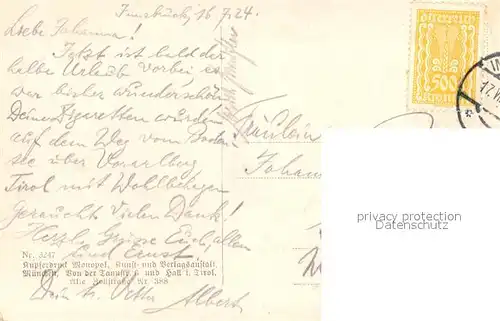 Innsbruck, 16.7.24.
Liebe Johanna!
Jetzt ist bald der
halbe Urlaub vorbei es
war bisher wunderschön
Deine Zigaretten wurden
auf dem Weg vom Boden-
see über Vorarlberg
Tirol mit Wohlbehagen
geraucht Vielen Dank!
Herzl. Grüsse Euch allen
und Ernst
Dein tr. Vetter Albert
Nr. 3247
Kupferdruck Monopol, Kunst- und Verlagsanstalt,
München. Von der Tannstr. und Hall i. Tirol.
Alte Zollstraße Nr. 388
Fräulein
Johan
österreich
500
Kronen
IN
17.VI
privacy protection
Datenschutz